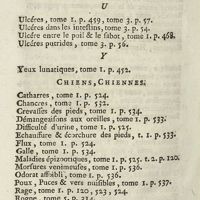 U
Ulcéres, tome 1. p. 459, tome 3. p. 57.
Ulcéres dans les intestins, tome 3. p. 54.
Ulcére entre le poil & le sabot, tome 1. p. 468.
Ulcéres putrides, tome 3. p. 56.
Y
Yeux lunatiques, tome 1. p. 452.
CHIENS, CHIENNES.
Catharres, tome 1. p. 524.
Chancres, tome 1. p. 532.
Crevasses des pieds, tome 1. p. 534.
Démangeaisons aux oreilles, tome 1. p. 533.
Difficulté d'urine, tome 1. p. 525.
Echauffure & écorchure des pieds, t. 1. p. 533.
Flux, tome 1. p. 524.
Galle, tome 1. p. 534.
Maladies épizootiques, tome 1. p. 525. t. 2. p. 120.
Morsures venimeuses, tome 1. p. 536.
Odorat affoibli, tome 1. p. 536.
Poux, Puces & vers nuisibles, tome 1. p. 537.
Rage, tome 1. p. 120, 523, 524.
Rogne, tome 5. p. 234.